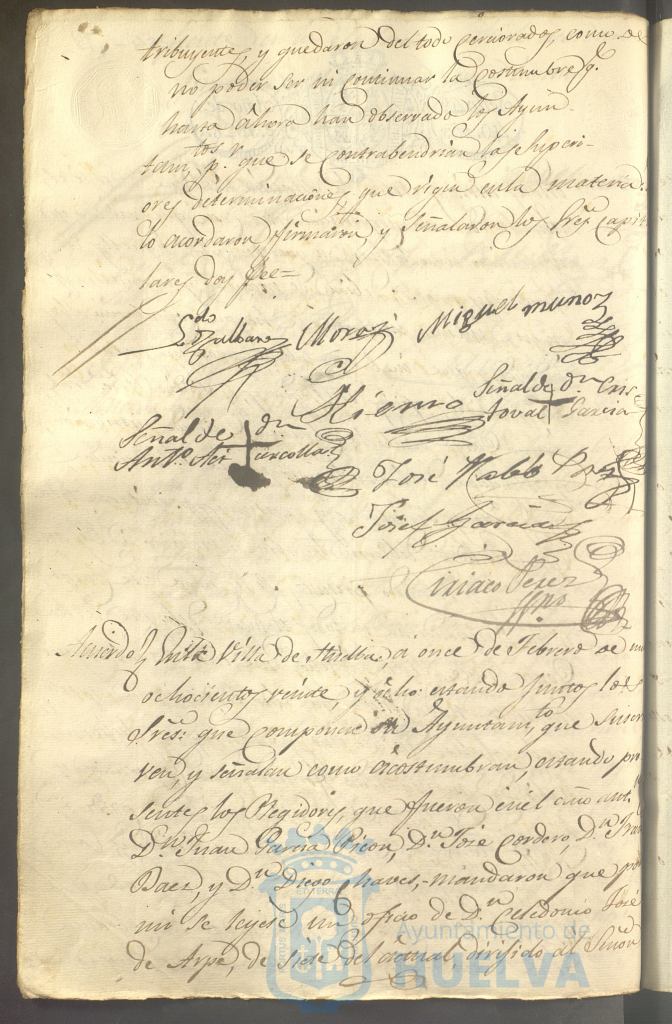 tribuyentes, y quedaron del todo cerciorados, como de
no poder ser ni continuar la costumbre q.e
hasta ahora han observado los Ayun-
tam.tos p.r que se contrabendrian las Superi-
ores determinaciones, que rigen en la materia:
lo acordaron, firmaron, y señalaron los Sres. capit
lares doy fee=
Miguel munoz
Hierro
Señal de d.n Cris
toval + Garcia
Señal de + d.n
Ant.o
José
Josef Garcia
Ciriaco Perez
Ss.no
Acuerdo} En la Villa de a once de Febrero de m
ochocientos veinte, y ocho: estando juntos los
Sres. que componen su Ayuntam.to que suscri
ven, y señalan como acostumbran, estando pre
sentes los Regidores, que fueron en el año ant.
D.n Juan Garcia Picon, D.n José Cordero, D.n Fran
Baez, y D.n Diego Chaves,-mandaron que por
mi se leyese un oficio de D.n Celedonio José
de Arpe, de siete del actual, dirijido al Señor
Ayuntamiento de
HUELVA